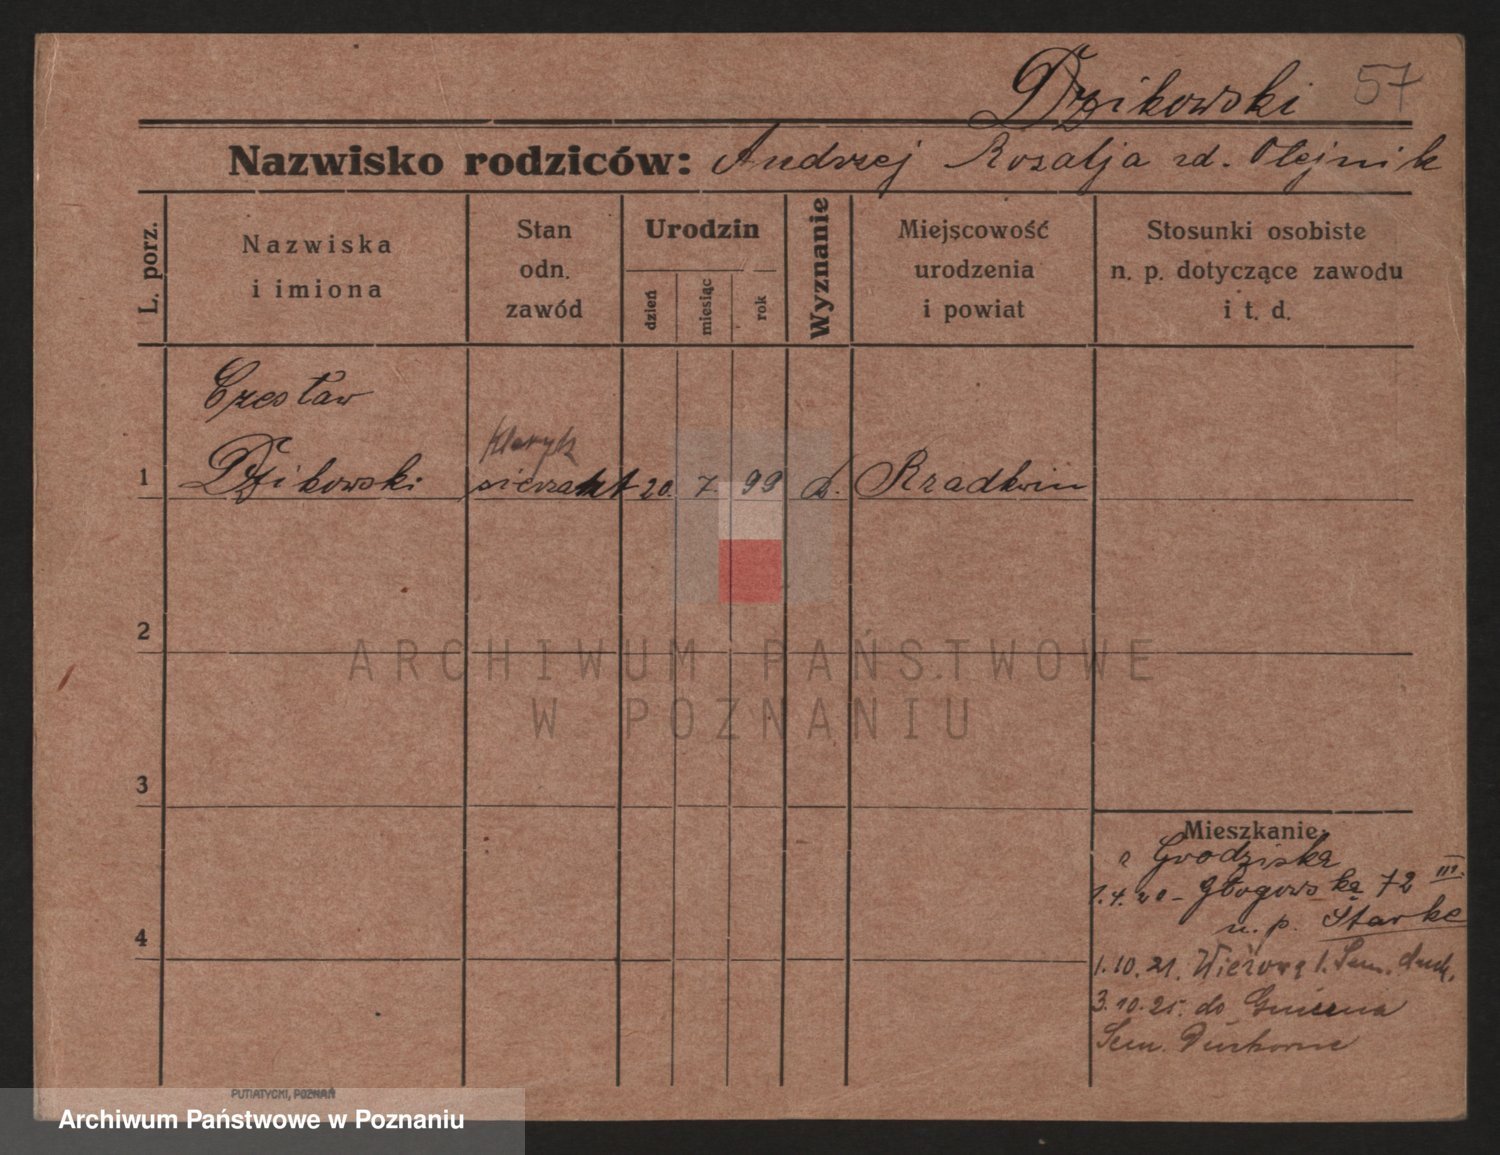 Dzikowski 57
Nazwisko rodziców: Andrzej Rozalja zd. Olejnik
L. porz.
Nazwiska
i imiona
Stan
odn.
zawód
Urodzin
dzień
miesiąc
rok
Wyznanie
Miejscowość
urodzenia
i powiat
Stosunki osobiste
n. p. dotyczące zawodu
i t. d.
Czesław
kleryk
1 Dzikowski 20. 7. 99 k. Rzadkwin
2
ARCHIWUM PAŃSTWOWE
W POZNANIU
3
Mieszkanie:
z Grodziska
1.4.20 - Głogowska 72 III.
u. p. Starke
4
1.10.21. Wieżowa 1. Sem. duch.
3.10.25. do Gniezna
Sem. Duchowne
PUTIATYCKI, POZNAŃ
Archiwum Państwowe w Poznaniu